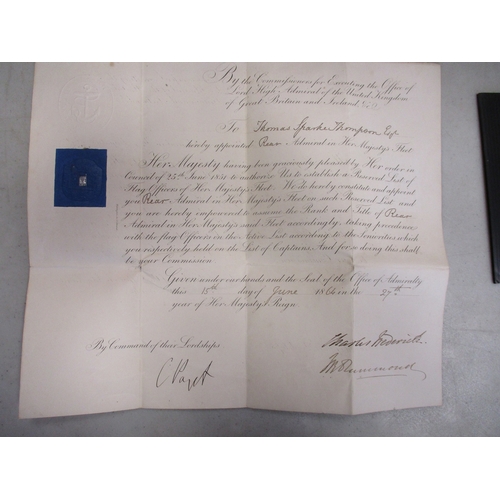 By the Commissioners for Executing the Office of
Lord High Admiral of the United Kingdom
of Great Britain and Ireland &c.
To Thomas Sparke Thompson Esqr
hereby appointed Rear Admiral in Her Majesty's Fleet
Her Majesty having been graciously pleased by Her order in
Council of 25th June 1851 to authorize Us to establish a Reserved List of
Flag Officers of Her Majesty's Fleet. We do hereby constitute and appoint
you Rear Admiral in Her Majesty's Fleet on such Reserved List and
you are hereby empowered to assume the Rank and Title of Rear
Admiral in Her Majesty's said Fleet accordingly taking precedence
with the Flag Officers on the Active List according to the Seniorities which
you respectively hold on the List of Captains. And for so doing this shall
be your Commission
Given under our hands and the Seal of the Office of Admiralty
this 15th day of June 186 in the 27th
year of Her Majesty's Reign
By Command of their Lordships
C Paget
Charles Frederick
Drummond